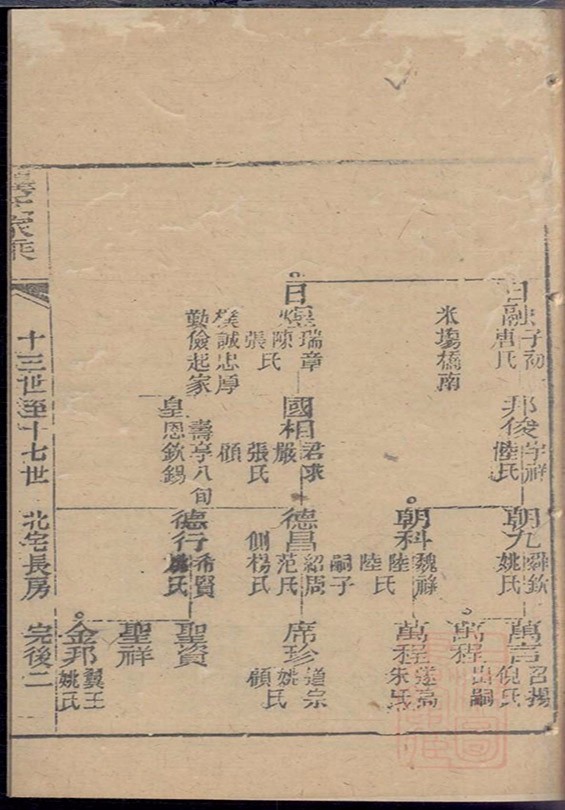 日融 子初 唐氏
米塲橋南
邦俊 宇祥 陸氏
朝九 舜欽 姚氏
萬言 召揚 倪氏
萬程 出嗣
朝科 魏祿 陸氏 陸氏
嗣子
萬程 遂高 朱氏
日 瑞章 陳氏 張氏
樸誠忠厚
勤儉起家
國相 君求 嚴 張氏 顧
壽亭八旬
皇恩欽錫
德昌 紹周 范氏 側楊氏
席珍 道宗 姚氏 顧氏
德行 希賢 姚氏
聖資
聖祥
金邦 翼王 姚氏
家乘
十三世至十七世
北宅長房
完後二